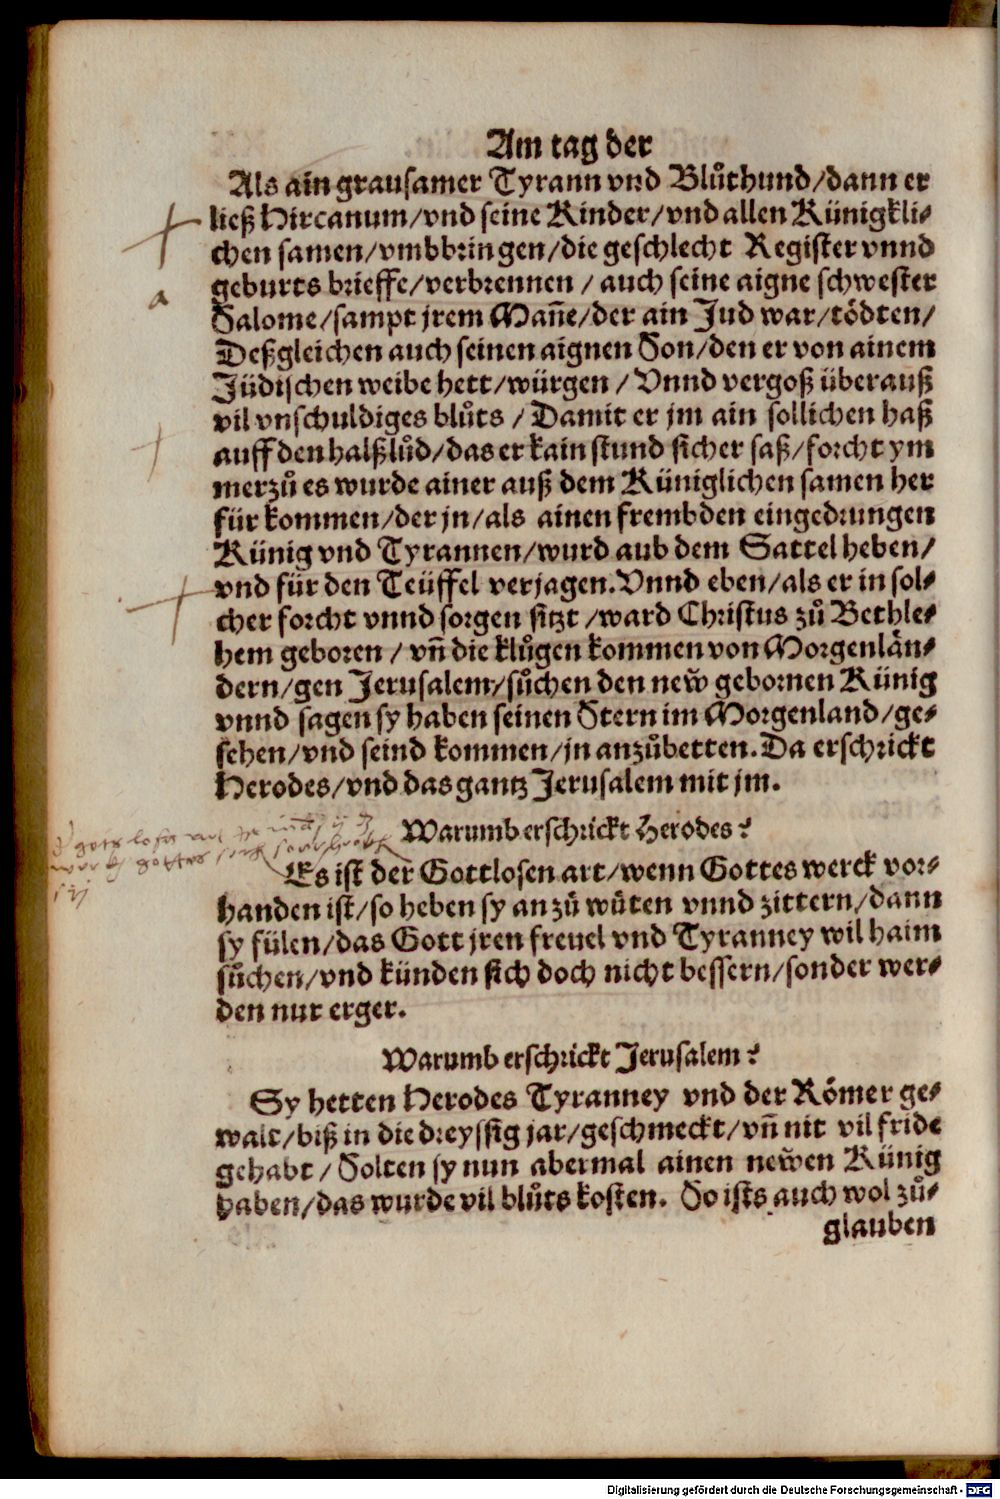 Am tag der
Als ain grausamer Tyrann vnd Blůthund/dann er
ließ Hircanum/vnd seine Kinder/vnd allen Künigkli⸗
chen samen/vmbbringen/die geschlecht Register vnnd
geburts brieffe/verbrennen / auch seine aigne schwester
a
Salome/sampt jrem Mañe/der ain Jud war/tödten/
Deßgleichen auch seinen aignen Son/den er von ainem
Jüdischen weibe hett/würgen / Vnnd vergoß überauß
vil vnschuldiges blůts / Damit er jm ain sollichen haß
auff den halß lůd/das er kain stund sicher saß/forcht ym
merzů es wurde ainer auß dem Küniglichen samen her
für kommen/der jn/als ainen frembden eingedrungen
Künig vnd Tyrannen/wurd aub dem Sattel heben/
vnd für den Teüffel verjagen. Vnnd eben/als er in sol⸗
cher forcht vnnd sorgen sitzt /ward Christus zů Bethle⸗
hem geboren / vñ die klůgen kommen von Morgenlän⸗
dern/gen Jerusalem/sůchen den new̃ gebornen Künig
vnnd sagen sy haben seinen Stern im Morgenland/ge⸗
sehen/vnd seind kommen/jn anzůbetten. Da erschrickt
Herodes/vnd das gantz Jerusalem mit jm.
Warumb erschrickt Herodes?
Es ist der Gottlosen art/wenn Gottes werck vor⸗
handen ist/so heben sy an zů wůten vnnd zittern/dann
sy fülen/das Gott jren freuel vnd Tyranney wil haim
sůchen/vnd künden sich doch nicht bessern/sonder wer⸗
den nur erger.
Warumb erschrickt Jerusalem?
Sy hetten Herodes Tyranney vnd der Römer ge⸗
walt/biß in die dreyssig jar/geschmeckt/vñ nit vil fride
gehabt / Solten sy nun abermal ainen new̃en Künig
haben/das wurde vil blůts kosten. So ists auch wol zů⸗
glauben
Digitalisierung gefördert durch die Deutsche Forschungsgemeinschaft - DFG